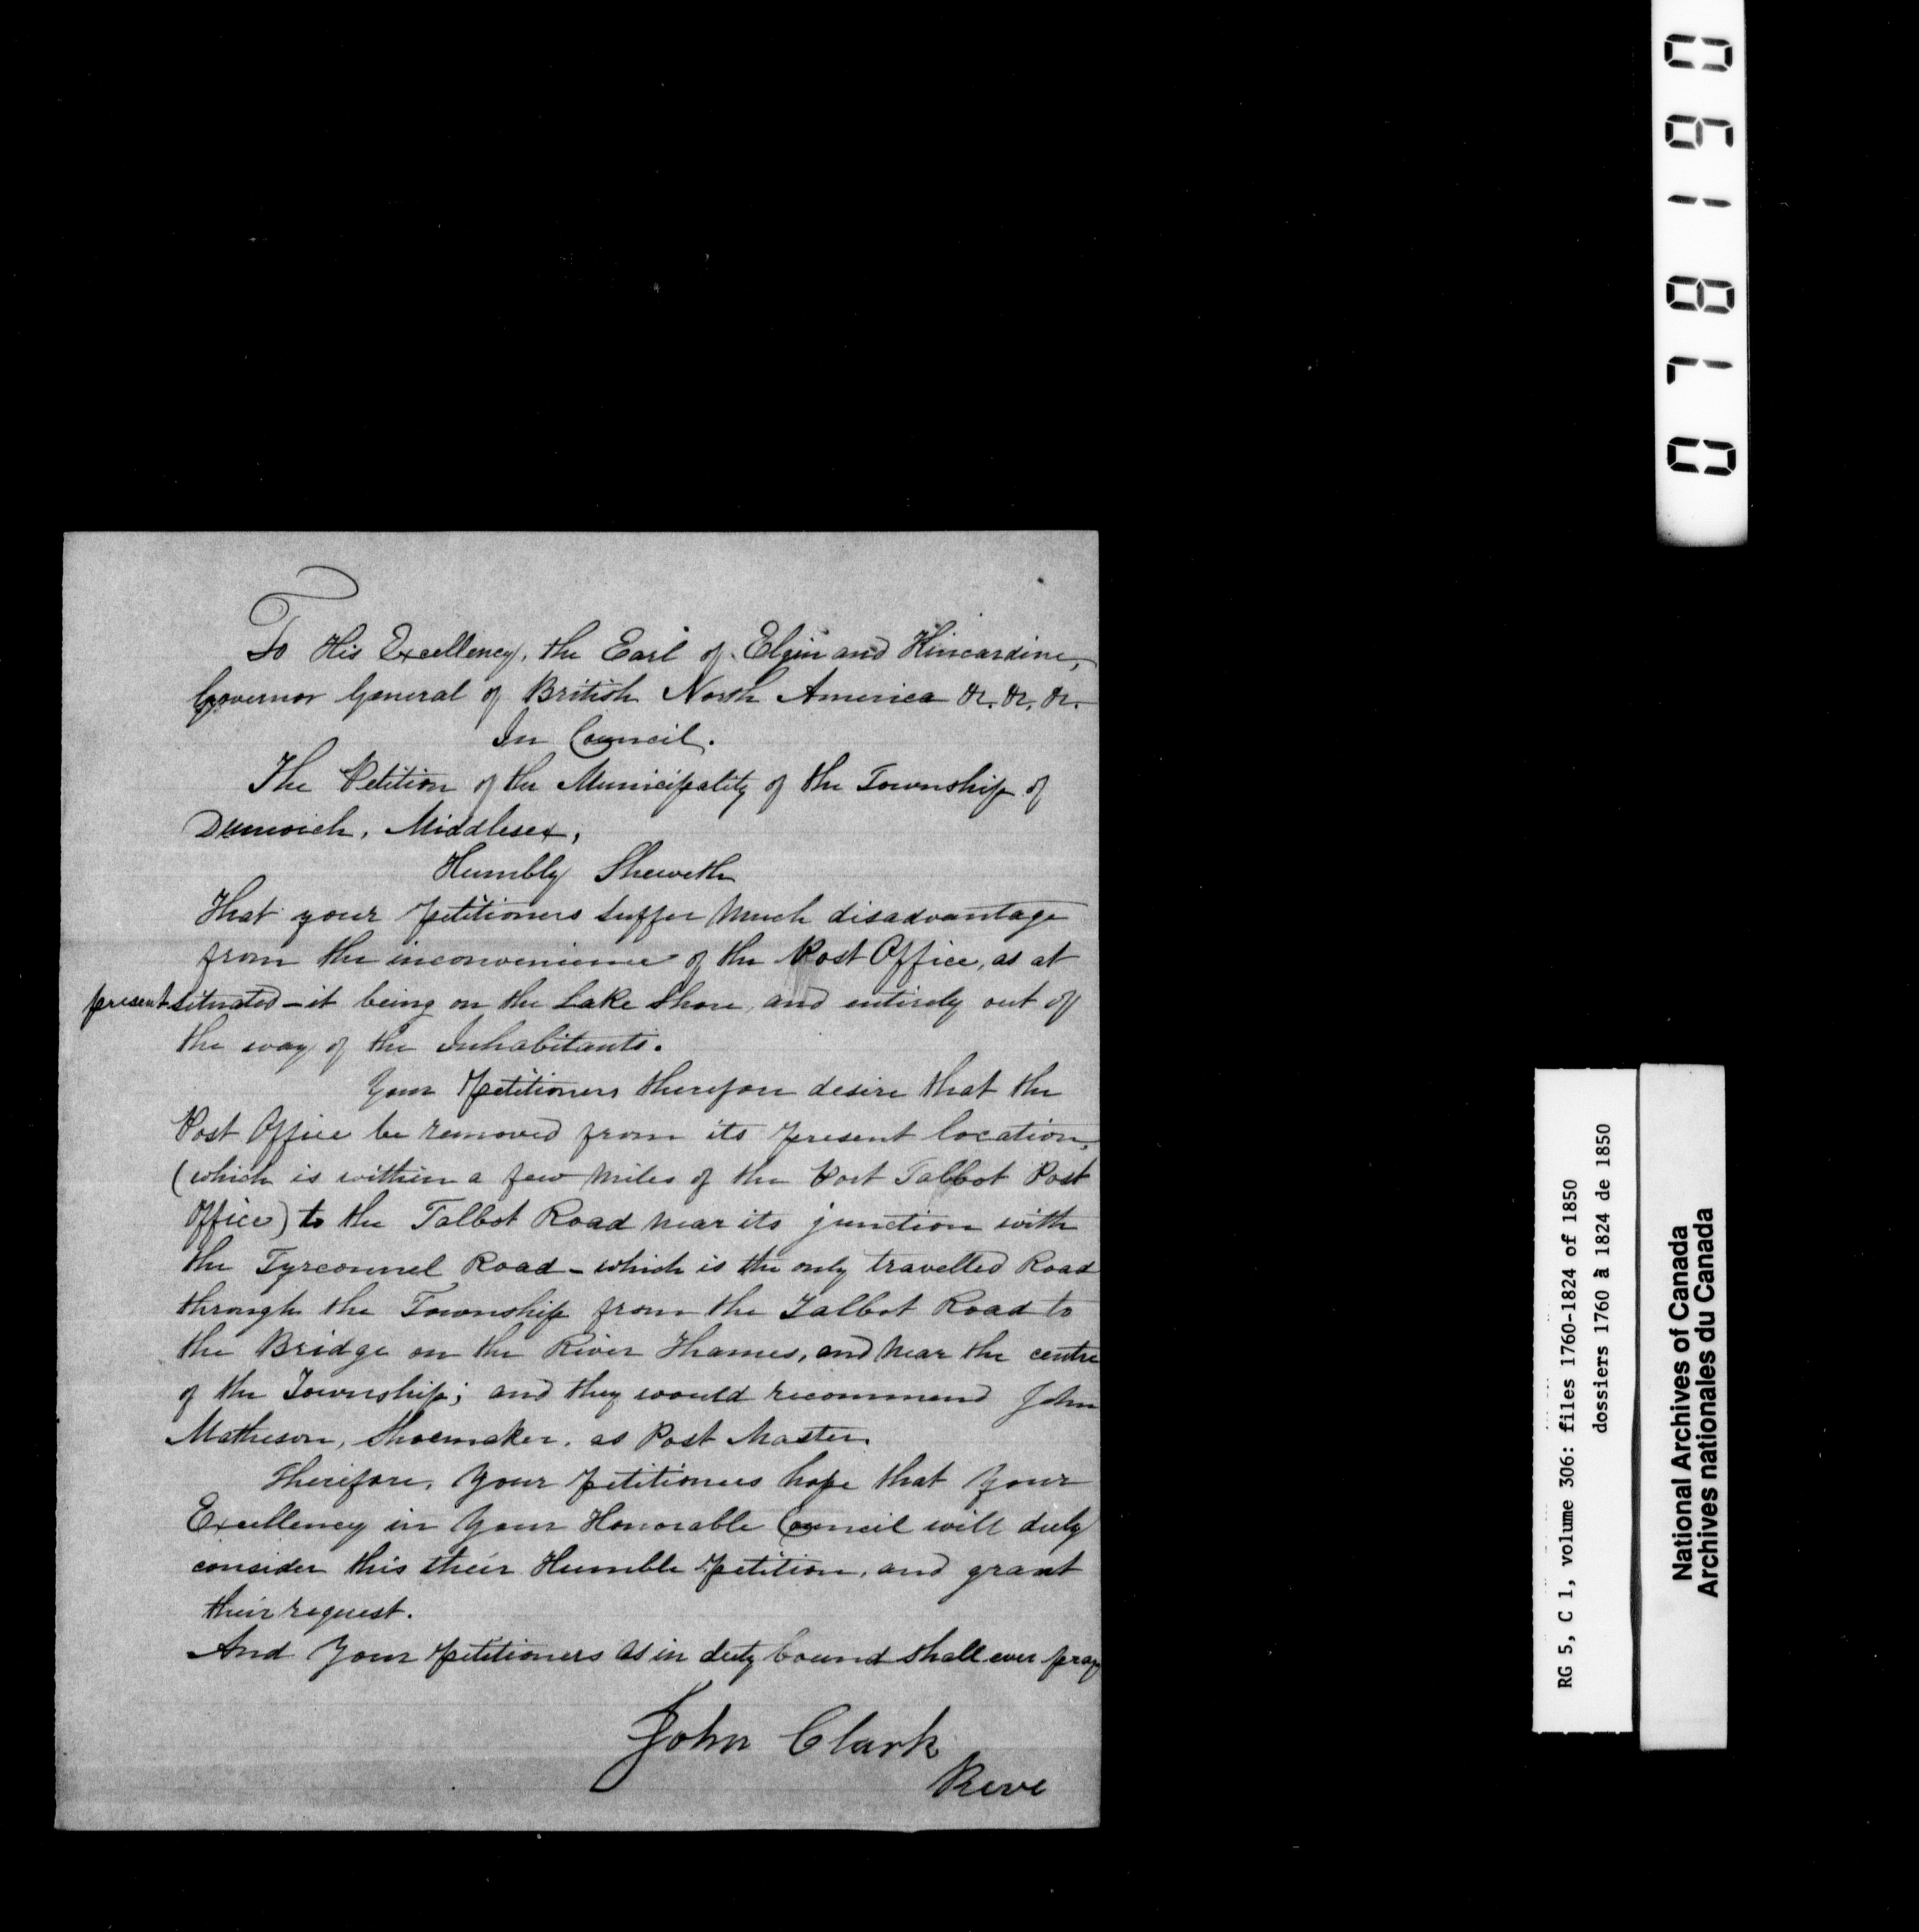 To His Excellency, the Earl of Elgin and Kincardine,
Governor General of British North America &c. &c. &c.
In Council.
The Petition of the Municipality of the Township of
Dunwich, Middlesex,
Humbly Sheweth
That your Petitioners suffer much disadvantage
from the inconvenience of the Post Office, as at
present situated - it being on the Lake Shore, and entirely out of
the way of the Inhabitants.
Your Petitioners therefore desire that the
Post Office be removed from its present location,
(which is within a few miles of the Port Talbot Post
Office) to the Talbot Road near its junction with
the Tyrconnel Road - which is the only travelled Road
through the Township from the Talbot Road to
the Bridge on the River Thames, and near the centre
of the Township; and they would recommend John
Matheson, Shoemaker, as Post Master.
Therefore, Your Petitioners hope that Your
Excellency in Your Honorable Council will duly
consider this their Humble Petition, and grant
their request.
And Your Petitioners as in duty bound shall ever pray
John Clark
Reve
078190
RG 5, C 1, volume 306: files 1760-1824 of 1850
dossiers 1760 à 1824 de 1850
National Archives of Canada
Archives nationales du Canada